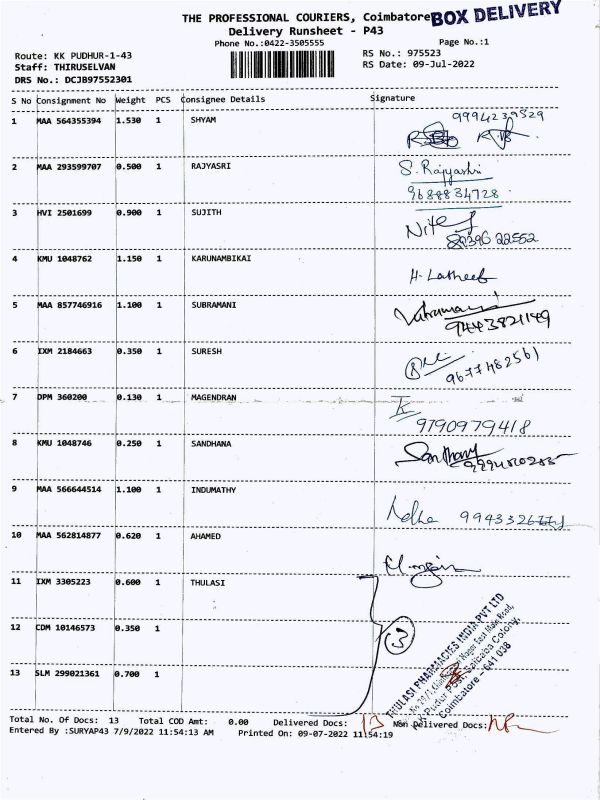 THE PROFESSIONAL COURIERS, Coimbatore BOX DELIVERY
Delivery Runsheet - P43
Phone No.:0422-3505555 Page No.:1
Route: KK PUDHUR-1-43 RS No.: 975523
Staff: THIRUSELVAN RS Date: 09-Jul-2022
DRS No.: DCJB97552301
S No Consignment No Weight PCS Consignee Details Signature
1 MAA 564355394 1.530 1 SHYAM 9994239529
2 MAA 293599707 0.500 1 RAJYASRI S. Rajyashri
9688834728
3 HVI 2501699 0.900 1 SUJITH
4 KMU 1048762 1.150 1 KARUNAMBIKAI H. Latheef
5 MAA 857746916 1.100 1 SUBRAMANI
6 IXM 2184663 0.350 1 SURESH 9677482561
7 DPM 360200 0.130 1 MAGENDRAN
9790979418
8 KMU 1048746 0.250 1 SANDHANA
9 MAA 566644514 1.100 1 INDUMATHY
10 MAA 562814877 0.620 1 AHAMED
11 IXM 3305223 0.600 1 THULASI
12 CDM 10146573 0.350 1 3
13 SLM 299021361 0.700 1
THULASI PHARMACIES INDIA PVT LTD
Coimbatore - 641 038
Total No. Of Docs: 13 Total COD Amt: 0.00 Delivered Docs: 13 Non Delivered Docs:
Entered By :SURYAP43 7/9/2022 11:54:13 AM Printed On: 09-07-2022 11:54:19